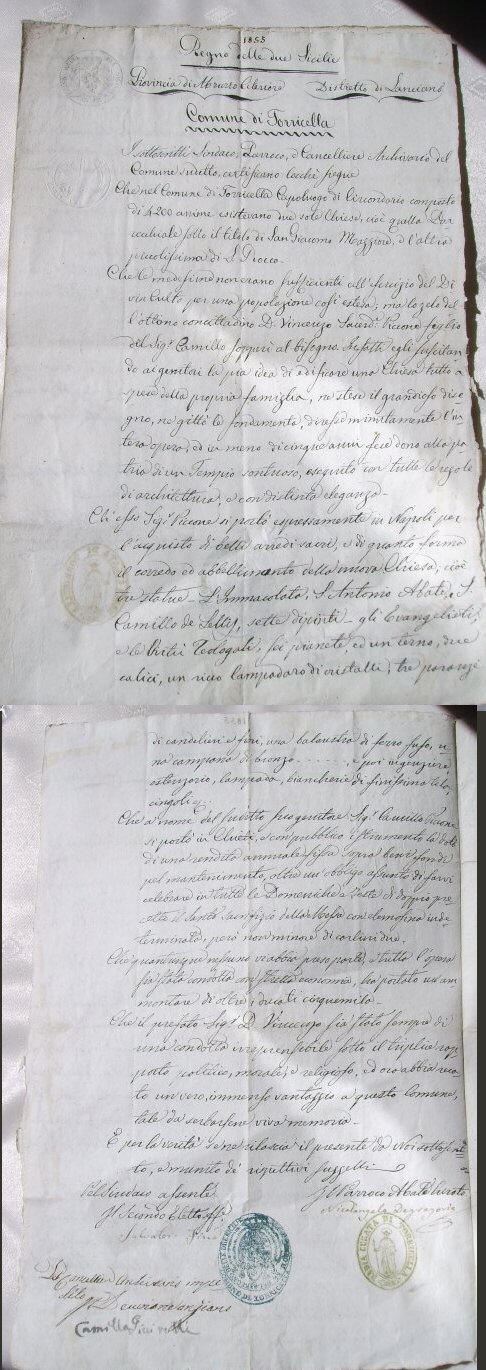 1855
Regno delle due Sicilie
Provincia di Abruzzo Citeriore Distretto di Lanciano
Comune di Torricella
I sottoscritti Sindaco, Parroco, e Cancelliere Archivario del
Comune sudetto, certificano locchè segue
Che nel Comune di Torricella Capoluogo di Circondario composto
di 4200 anime esistevano due sole Chiese, cioè quella Par-
rocchiale sotto il titolo di San Giacomo Maggiore, e l'altra
piccolissima di S. Rocco.
Che le medesime non erano sufficienti all'esercizio del Di-
vin Culto per una popolazione così estesa; ma lo zelo del
l'ottimo concittadino D. Vincenzo Sacerd. Piccone figlio
del Sig. Camillo supplì al bisogno. Infatti egli suscitan-
do ai genitori la pia idea di edificare una Chiesa tutta a
spese della propria famiglia, ne stese il grandioso dise-
gno, ne gittò le fondamenta, diresse mirabilmente l'in-
tera opera, ed in meno di cinque anni fece dono alla pa-
tria di un Tempio sontuoso, eseguito con tutte le regole
di architettura, e con distinta eleganza.
Che esso Sig. Piccone si portò espressamente in Napoli per
l'acquisto di belli arredi sacri, e di quanto forma
il corredo ed abbellimento della nuova Chiesa, cioè
tre statue - L'Immacolata, S. Antonio Abate, S.
Camillo de Lellis, sette dipinti - gli Evangelisti,
e le Virtù Teologali, sei pianete, ed un terno, due
calici, un ricco lampadaro di cristalli, tre parature
di candelieri e fiori, una balaustra di ferro fuso, u-
na campana di bronzo, e poi incenziere
ostenzorio, lampada, biancherie di finissima tela,
cingoli
Che a nome del suddetto suo genitore Sig. Camillo Piccone
si portò in Chieti, e con pubblico istrumento la dotò
di una rendita annuale fissa sopra beni fondi
pel mantenimento, oltre un obbligo assunto di farvi
celebrare in tutte le Domeniche e Feste di doppio pre-
cetto il Santo Sacrifizio della Messa con elemosina inde-
terminata, però non minore di carlini due.
Che quantunque nessuno vi abbia preso parte, e tutta l'opera
sia stata condotta con stretta economia, ha portato un am-
montare di oltre i ducati cinquemila.
Che il prefato Sig. D. Vincenzo sia stato sempre di
una condotta irreprensibile sotto il triplice rap-
porto politico, morale, e religioso, ed ora abbia reca-
to un vero, immenso vantaggio a questo Comune,
tale da serbarsene viva memoria.
E per la verità se ne rilascia il presente da Noi sottoscrit-
to, e munito de' rispettivi suggelli
Pel Sindaco assente Il Parroco Abate Curato
Il Secondo Eletto Nicolangelo
Salvatore
Il Cancelliere
Camillo